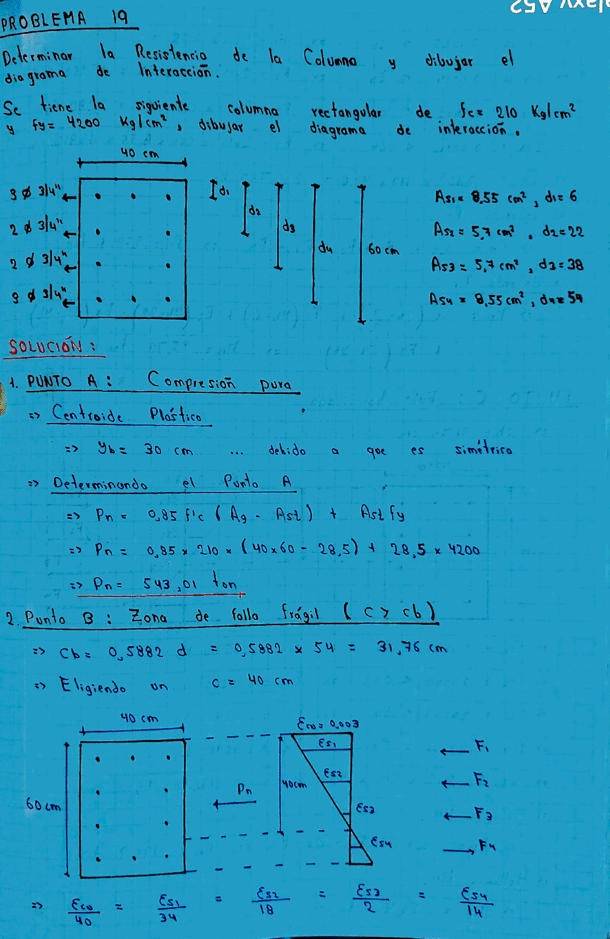 PROBLEMA 19
Galaxy A52
Determinar la Resistencia de la Columna y dibujar el
diagrama de Interacción.
Se tiene la siguiente columna rectangular de fc= 210 Kg/cm²
y fy= 4200 Kg/cm², dibujar el diagrama de interacción.
40 cm
3 ø 3/4" ←
2 ø 3/4" ←
2 ø 3/4" ←
3 ø 3/4" ←
d1
d2
d3
d4
60 cm
As1 = 8,55 cm², d1= 6
As2 = 5,7 cm², d2=22
As3 = 5,7 cm², d3=38
As4 = 8,55 cm², d4= 54
SOLUCIÓN:
1. PUNTO A: Compresión pura
=> Centroide Plástico
=> yb = 30 cm ... debido a que es simétrico
=> Determinando el Punto A
=> Pn = 0,85 f'c (Ag - Ast) + Ast fy
=> Pn = 0,85 × 210 × (40×60 - 28,5) + 28,5 × 4200
=> Pn = 543,01 ton
2. Punto B: Zona de falla frágil (c > cb)
=> Cb = 0,5882 d = 0,5882 × 54 = 31,76 cm
=> Eligiendo un c = 40 cm
40 cm
60 cm
Pn
Ecu = 0,003
40cm
Es1
Es2
Es3
Es4
← F1
← F2
← F3
→ F4
=> Ecu/40 = Es1/34 = Es2/18 = Es3/2 = Es4/14